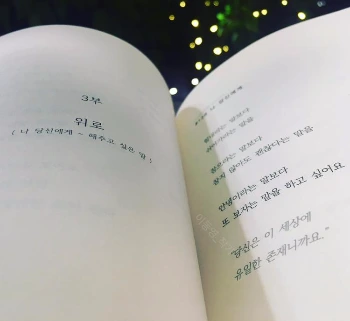 3부
위로
( 나 당신에게 - 해주고 싶은 말 )
말보다
말을
말보다
않아도 괜찮다는 말을
안녕이라는 말보다
또 보자는 말을 하고 싶어요
"당신은 이 세상에
유일한 존재니까요."